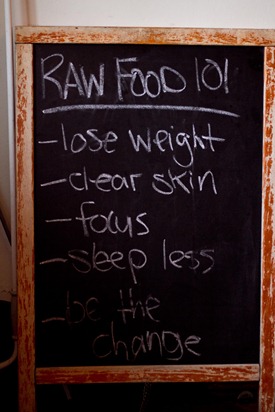 RAW FOOD 101
- lose weight
- clear skin
- focus
- sleep less
- be the
change